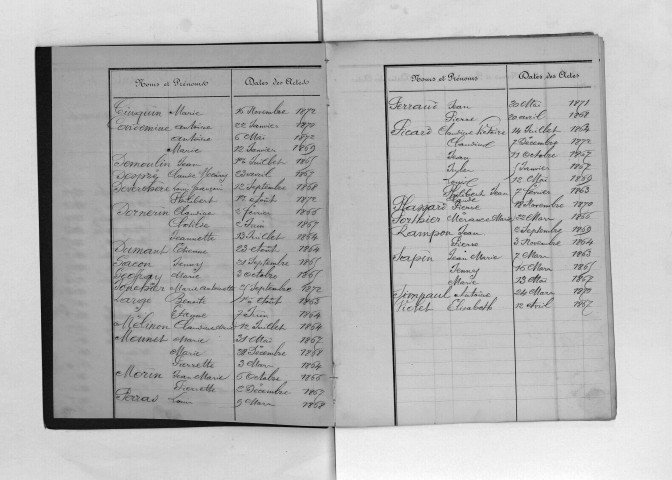 Noms et Prénoms Dates des Actes
Cinquin Marie 16 Novembre 1872
Condemine Antoine 22 Janvier 1870
Antoine 6 Mai 1872
Marie 12 Janvier 1869
Demoulin Jean Juillet 1865
Desprès Claude avril
Louis François 12 Septembre 1868
Philibert 1er Août 1872
Claudine 2 février 1866
Clotilde 2 Juin
Jeannette 13 Juillet 1864
Dumont Etienne 23 août 1864
Facon Jenny 21 Septembre 1865
Geoffray Marie 3 octobre 1865
Marie Antoinette Septembre 1872
Large Benoite 1er Août 1865
Etienne 7 Juin 1864
Mélinon 12 Juillet 1864
Monnet Marie 31 Mai
Marie 28 Décembre 1868
Pierrette 3 Mars 1864
Morin Jean Marie 5 Octobre 1866
Pierrette 2 Décembre
Perras 9 Mars 1868
Noms et Prénoms Dates des Actes
Perraud Jean 20 Mai 1871
Pierre 20 avril 1868
Picard 14 Juillet 1864
Claudine 7 Décembre 1872
Jean 11 Octobre
Janvier
12 Mai 1869
Philibert Jean 7 février 1863
Claude
Plassard Pierre 18 Novembre 1870
Porthier Marie 22 Mars 1866
Rampon Jean 2 Septembre 1869
Pierre 3 Novembre 1864
Sapin Jean Marie 7 Mars 1863
Jenny 16 Mars 1865
Marie 13 Mai
Antoine 24 Mars 1870
Violet Elisabeth 12 Avril